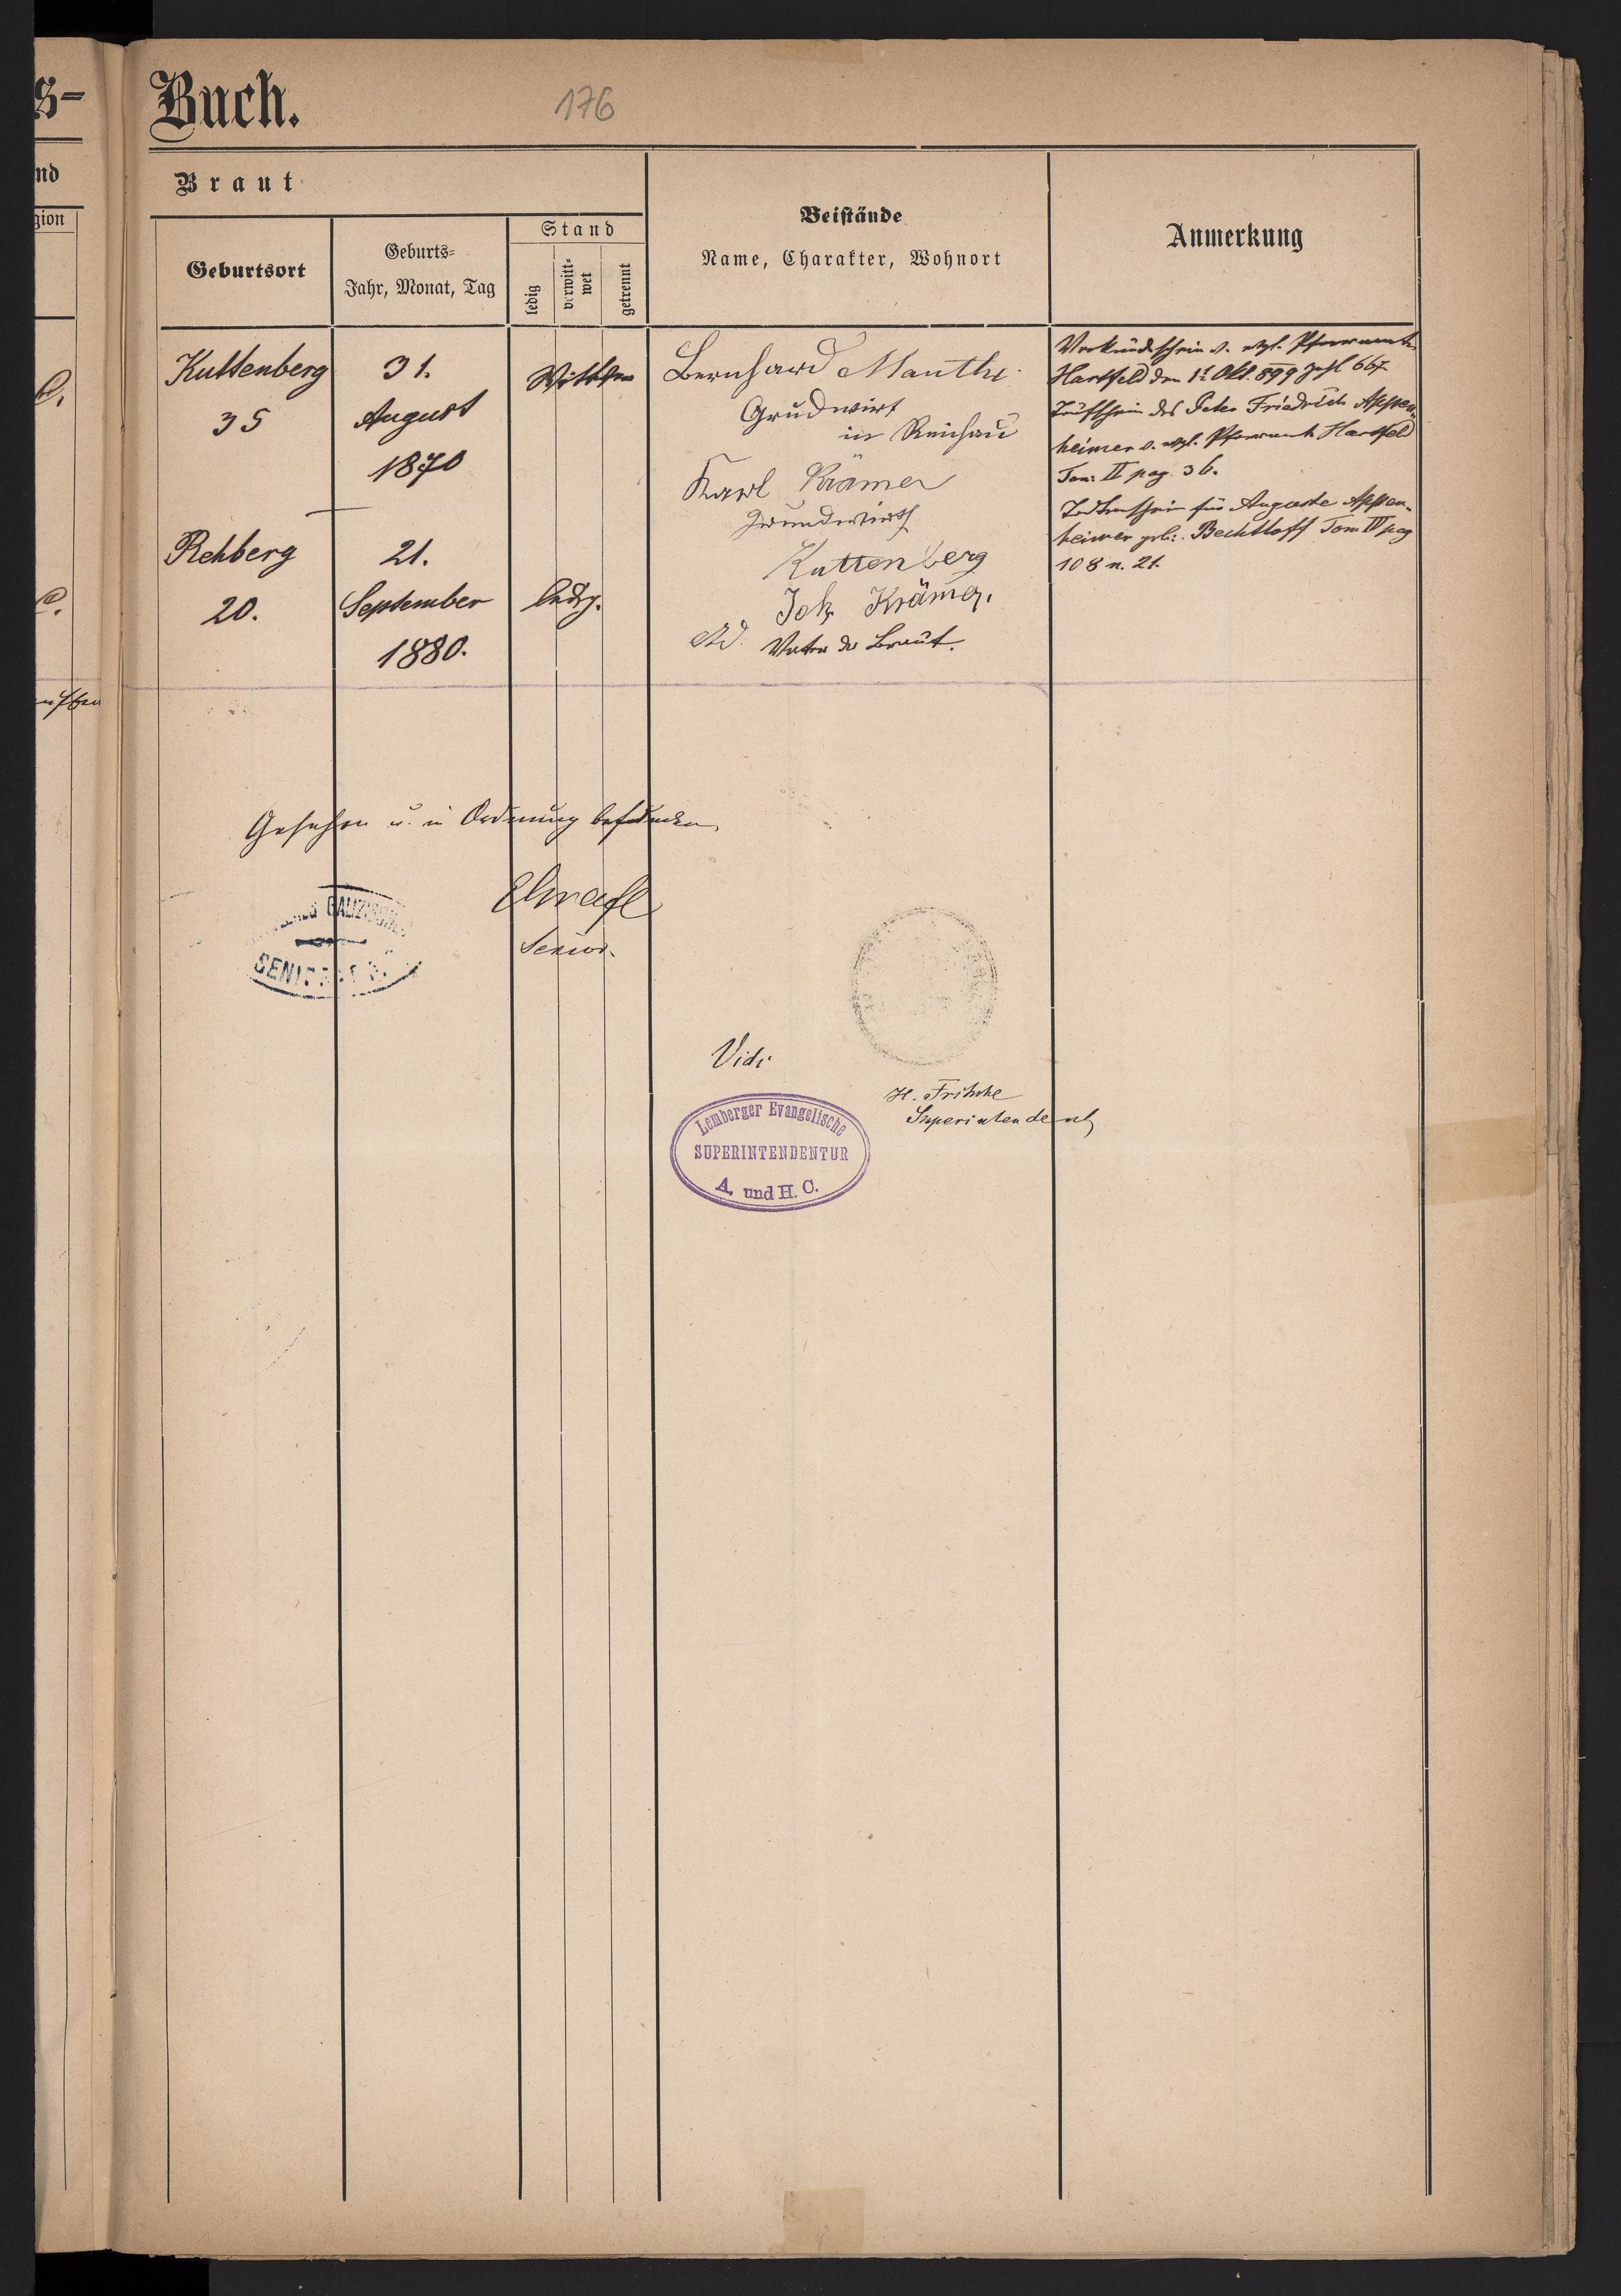 s-
Buch.
176
nd
gion
Braut
Geburtsort
Geburts-
Jahr, Monat, Tag
Stand
ledig
verwitt-
wet
getrennt
Beistände
Name, Charakter, Wohnort
Anmerkung
Kuttenberg
35
31.
August
1870
Bernhard Manthe
Grudwirt
in Reichau
Karl Krämer
Grundwirth
Kuttenberg
Verkündschein v. evgl. Pfarramte
Hartfeld den 1t Okt. 899 Zahl 667
Taufschein des Peter Friedrich Appen-
heimer v. evgl. Pfarramte Hartfeld
Tom: II pag. 36.
Todtenschein für Auguste Appen-
heimer geb: Bechtloff Tom IV pag
108 n. 21.
Rehberg
20.
21.
September
1880.
ledig.
Joh Krämer.
Ad. Vater der Braut.
C.
C.
Gesehen u. in Ordnung befunden
Senior.
GALIZISCHES
SENI
Vidi
H. Fritsche
Superintendent
Lemberger Evangelische
SUPERINTENDENTUR
A. und H. C.